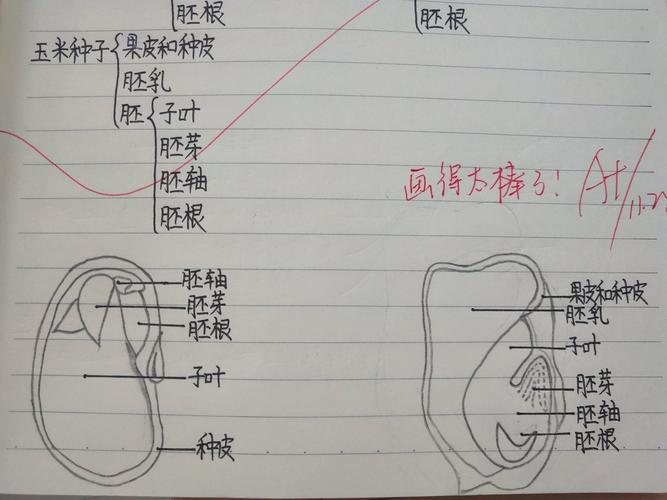 胚根
胚根
玉米种子{果皮和种皮
胚乳
胚{子叶
胚芽
胚轴
胚根
画得太棒了! A+
胚轴
胚芽
胚根
子叶
种皮
果皮和种皮
胚乳
子叶
胚芽
胚轴
胚根